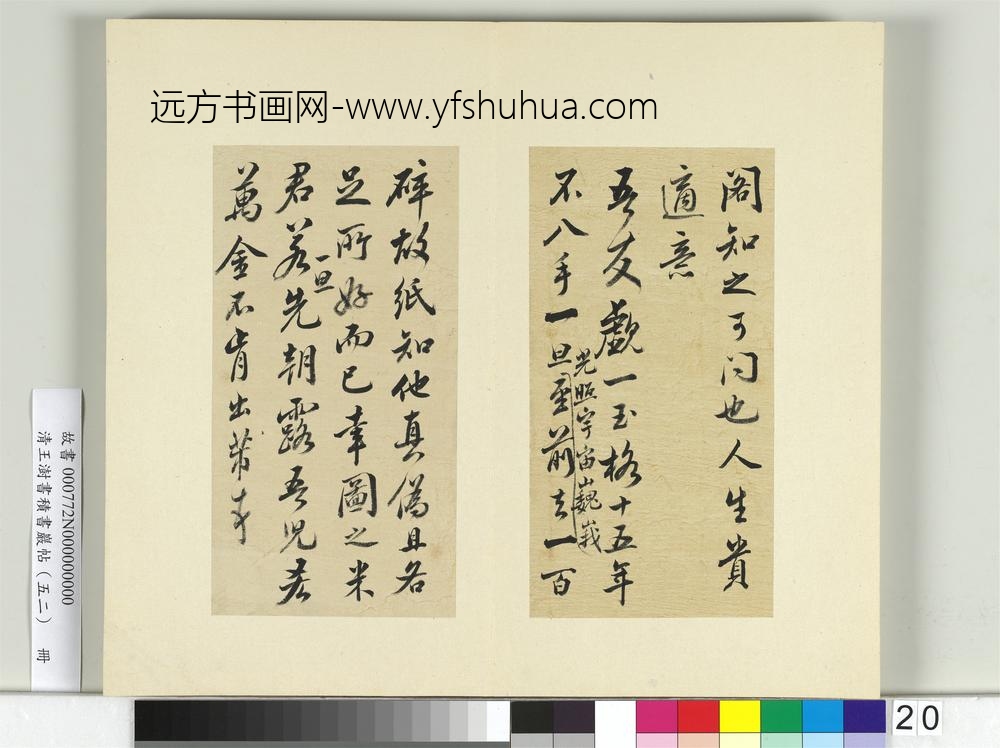 远方书画网-www.yfshuhua.com
閣知之可问也人生貴
適意
吾友觑一玉格十五年
光照宇宙巍峩
不入手一旦至前去一百
碎故紙知他真偽且各
足所好而已韋圖之米
一旦
君若先朝露吾兒吝
萬金不肯出芾
故書 000772N000000000
清王澍書積書巖帖(五二) 冊
20